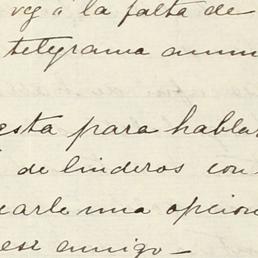 vez á la falta de
telegrama anun
esta para hablar
de linderos con
earle una opcion
ese amigo—